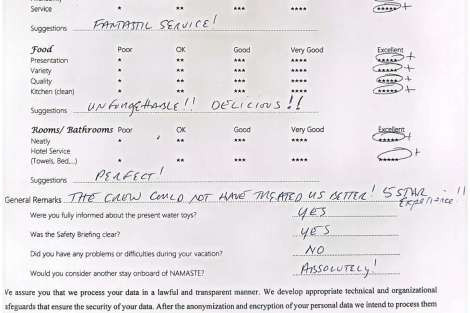 Service * ** *** **** ***** +
Suggestions FANTASTIC SERVICE!
Food Poor OK Good Very Good Excellent
Presentation * ** *** **** ***** +
Variety * ** *** **** ***** +
Quality * ** *** **** ***** +
Kitchen (clean) * ** *** **** ***** +
Suggestions UNFORGETTABLE!! DELICIOUS!!
Rooms/ Bathrooms Poor OK Good Very Good Excellent
Neatly * ** *** **** ***** +
Hotel Service
(Towels, Bed,...) * ** *** **** ***** +
Suggestions PERFECT!
General Remarks THE CREW COULD NOT HAVE TREATED US BETTER! 5 STAR Experience!!
Were you fully informed about the present water toys? YES
Was the Safety Briefing clear? YES
Did you have any problems or difficulties during your vacation? NO
Would you consider another stay onboard of NAMASTE? ABSOLUTELY!
We assure you that we process your data in a lawful and transparent manner. We develop appropriate technical and organizational
safeguards that ensure the security of your data. After the anonymization and encryption of your personal data we intend to process them